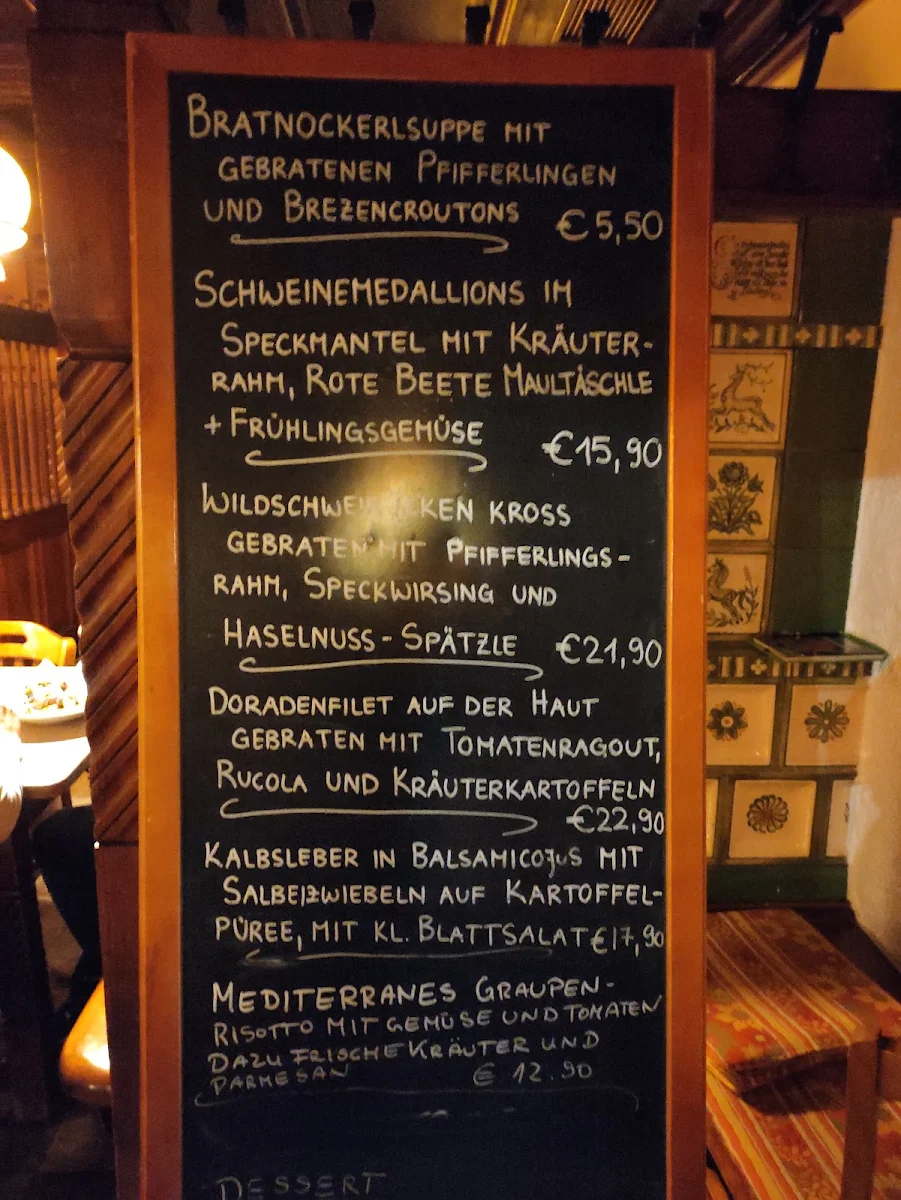 BRATNOCKERLSUPPE MIT
GEBRATENEN PFIFFERLINGEN
UND BREZENCROUTONS €5,50
SCHWEINEMEDALLIONS IM
SPECKMANTEL MIT KRÄUTER-
RAHM, ROTE BEETE MAULTÄSCHLE
+ FRÜHLINGSGEMÜSE €15,90
KROSS
GEBRATEN MIT PFIFFERLINGS-
RAHM, SPECKWIRSING UND
HASELNUSS-SPÄTZLE €21,90
DORADENFILET AUF DER HAUT
GEBRATEN MIT TOMATENRAGOUT,
RUCOLA UND KRÄUTERKARTOFFELN
€22,90
KALBSLEBER IN BALSAMICOJUS MIT
SALBEIZWIEBELN AUF KARTOFFEL-
PÜREE, MIT KL. BLATTSALAT €17,90
MEDITERRANES GRAUPEN-
RISOTTO MIT GEMÜSE UND TOMATEN
DAZU FRISCHE KRÄUTER UND
PARMESAN € 12.90
DESSERT